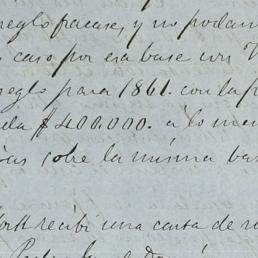 reglo fracase, y no podam
caso por esa base con V
reglo para 1861. con la p
da $400.000. a lo me
sobre la misma ba
York recibi una carta de